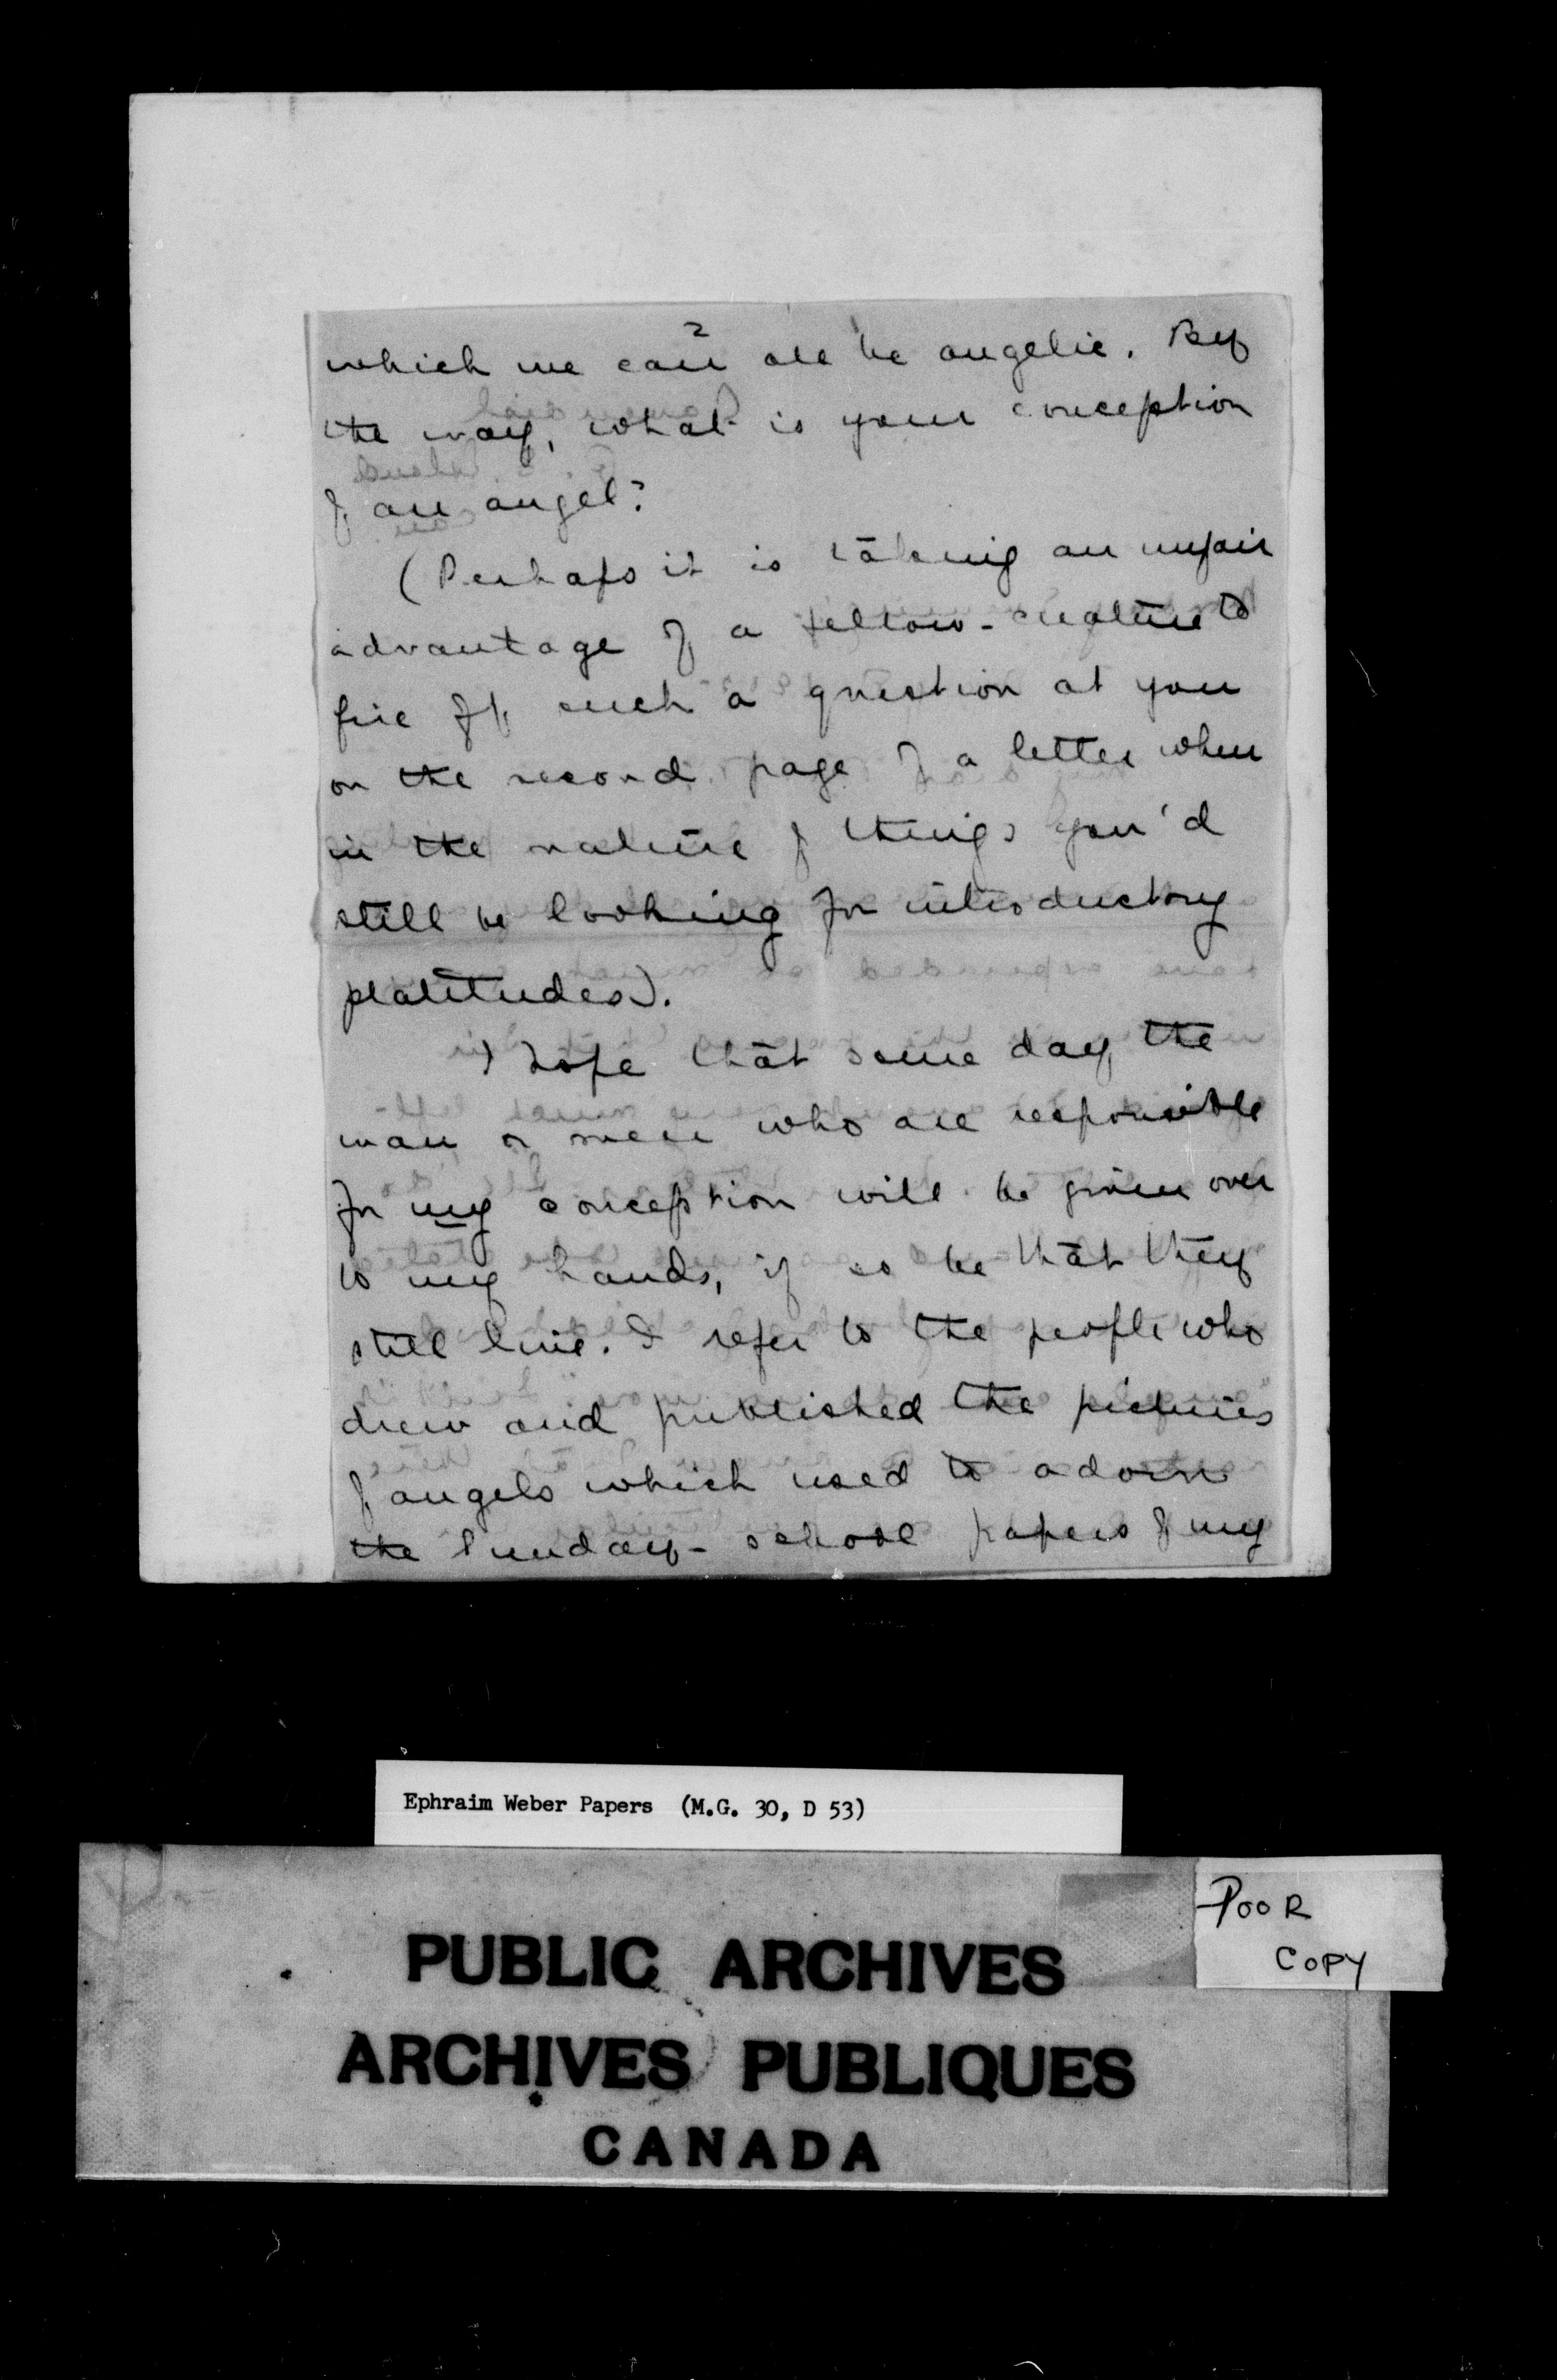 2
which we can all be angelic. By
the way, what is your conception
of an angel?
(Perhaps it is taking an unfair
advantage of a fellow-creature to
fire off such a question at you
on the second page of a letter when
in the nature of things you'd
still be looking for introductory
platitudes).
I hope that some day the
man or men who are responsible
for my conception will be given over
to my hands, if so be that they
still live. I refer to the people who
drew and published the pictures
of angels which used to adorn
the Sunday-school papers of my
Ephraim Weber Papers (M.G. 30, D 53)
POOR
COPY
PUBLIC ARCHIVES
ARCHIVES PUBLIQUES
CANADA